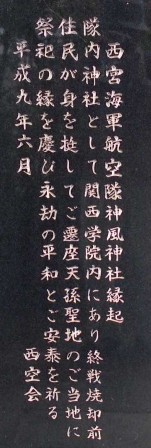 西宮海軍航空隊神風神社縁起
隊内神社として関西学院内にあり終戦焼却前
住民が身を挺してご遷座天孫聖地のご当地に
祭祀の縁を慶び永劫の平和とご安泰を祈る
平成九年六月
西空会